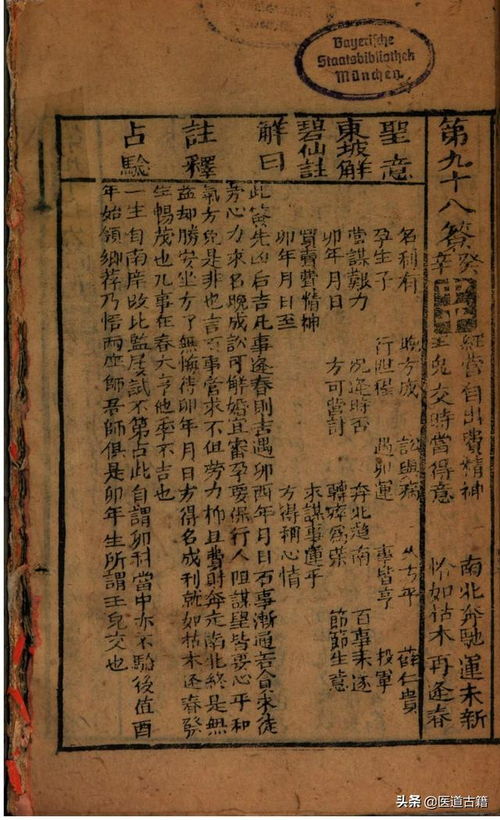 Bayerische
Staatsbibliothek
München
第九十八籤
辛癸
經營百出費精神 南北奔馳運未新
玉兔交時當得意 恰如枯木再逢春
聖意
名利有 晚方成 訟與病 久方平
孕生子 行阻程 遇卯運 事皆亨
薛仁貴
投軍
東坡解
營謀艱力 況逢時否 奔北趨南 百事未遂
卯年月日 方可當討 轉瘁為榮 節節生意
碧仙註
買賣費精神 求謀事運乎
卯年月日至 方得稱心情
解曰
此簽先凶後吉凡事逢春則吉遇卯酉年月日百事漸通否會求徒
勞心力求名晚成訟可解婚宜審孕要保行人阻謀望皆要心平和
氣方免是非也
註釋
言百事營求不但勞力抑且費財奔走南北終是無
益却勝安坐方了無悔待卯年月日方得名成利就如枯木逢春發
生暢茂也凡事在春大亨他季不吉也
占驗
一生自南庠改北監屢試不第占此自謂卯科當中亦不驗後值酉
年始領鄉荐乃悟兩座師房師俱是卯年生所謂玉兔交也
头条 @医道古籍